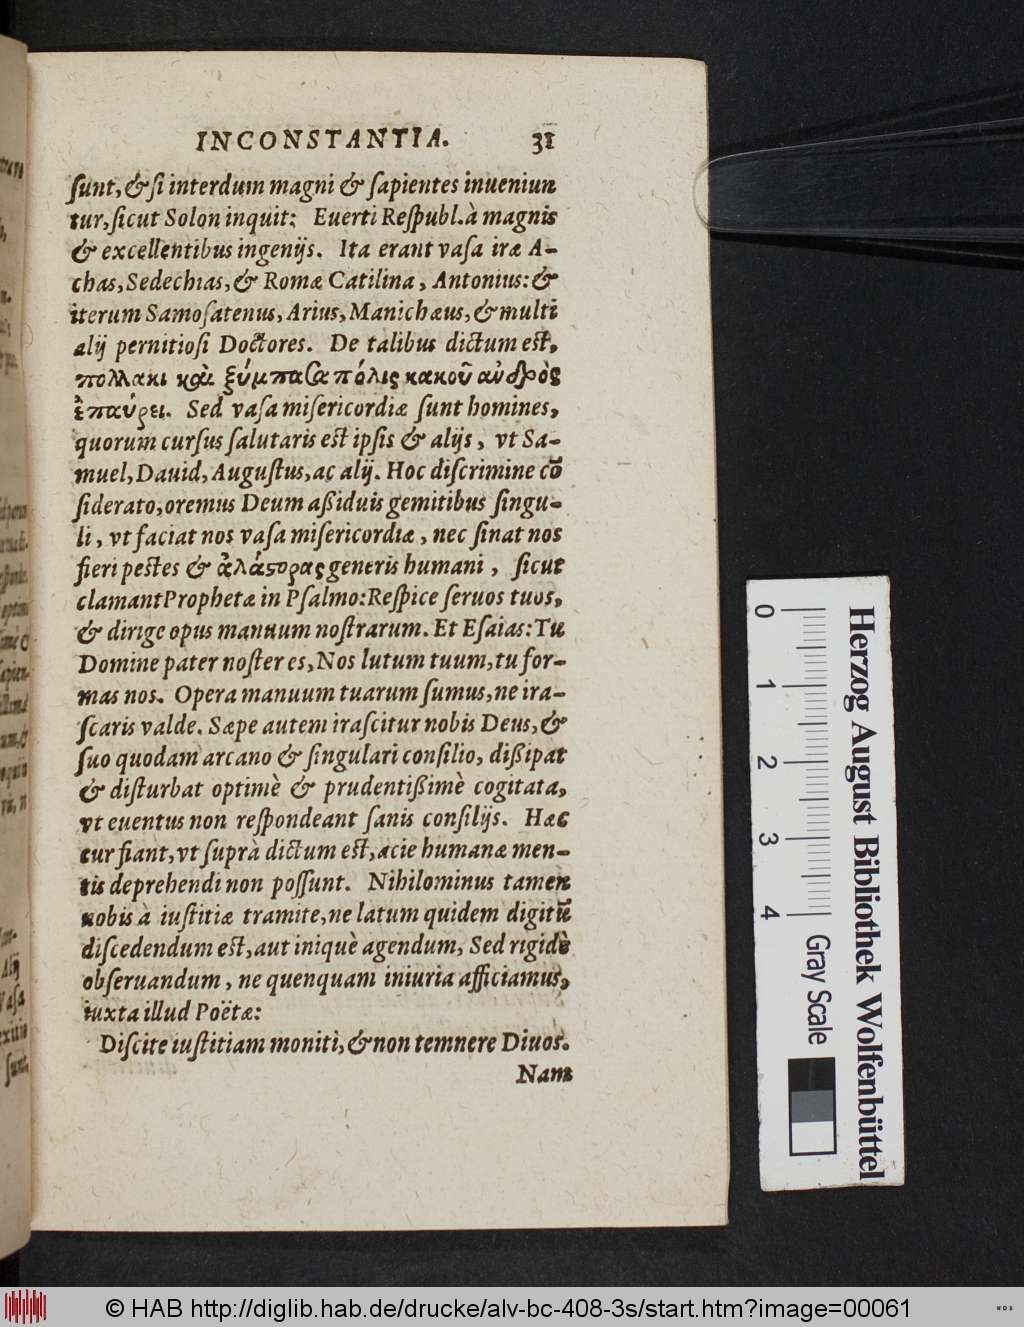 INCONSTANTIA. 31
ſunt, & ſi interdum magni & ſapientes inueniun
tur, ſicut Solon inquit: Euerti Reſpubl. à magnis
& excellentibus ingenijs. Ita erant vaſa iræ A-
chas, Sedechias, & Romæ Catilina, Antonius: &
iterum Samoſatenus, Arius, Manichæus, & multi
alij pernitioſi Doctores. De talibus dictum eſt,
πολλακι καὶ ξύμπασα πόλις κακοῦ ἀνδρὸς
ἐπαύρει. Sed vaſa miſericordiæ ſunt homines,
quorum curſus ſalutaris eſt ipſis & alijs, vt Sa-
muel, Dauid, Auguſtus, ac alij. Hoc diſcrimine cō
ſiderato, oremus Deum aßiduis gemitibus ſingu-
li, vt faciat nos vaſa miſericordiæ, nec ſinat nos
fieri peſtes & ἀλάςορας generis humani, ſicut
clamant Prophetæ in Pſalmo: Reſpice ſeruos tuos,
& dirige opus manuum noſtrarum. Et Eſaias: Tu
Domine pater noſter es, Nos lutum tuum, tu for-
mas nos. Opera manuum tuarum ſumus, ne ira-
ſcaris valde. Sæpe autem iraſcitur nobis Deus, &
ſuo quodam arcano & ſingulari conſilio, dißipat
& diſturbat optimè & prudentißimè cogitata,
vt euentus non reſpondeant ſanis conſilijs. Hæc
cur fiant, vt ſuprà dictum eſt, acie humanæ men-
tis deprehendi non poſſunt. Nihilominus tamen
nobis à iuſtitiæ tramite, ne latum quidem digitū
diſcedendum eſt, aut iniquè agendum, Sed rigidè
obſeruandum, ne quenquam iniuria afficiamus,
iuxta illud Poëtæ:
Diſcite iuſtitiam moniti, & non temnere Diuos.
Nam
0 1 2 3 4 Gray Scale
Herzog August Bibliothek Wolfenbüttel
© HAB http://diglib.hab.de/drucke/alv-bc-408-3s/start.htm?image=00061